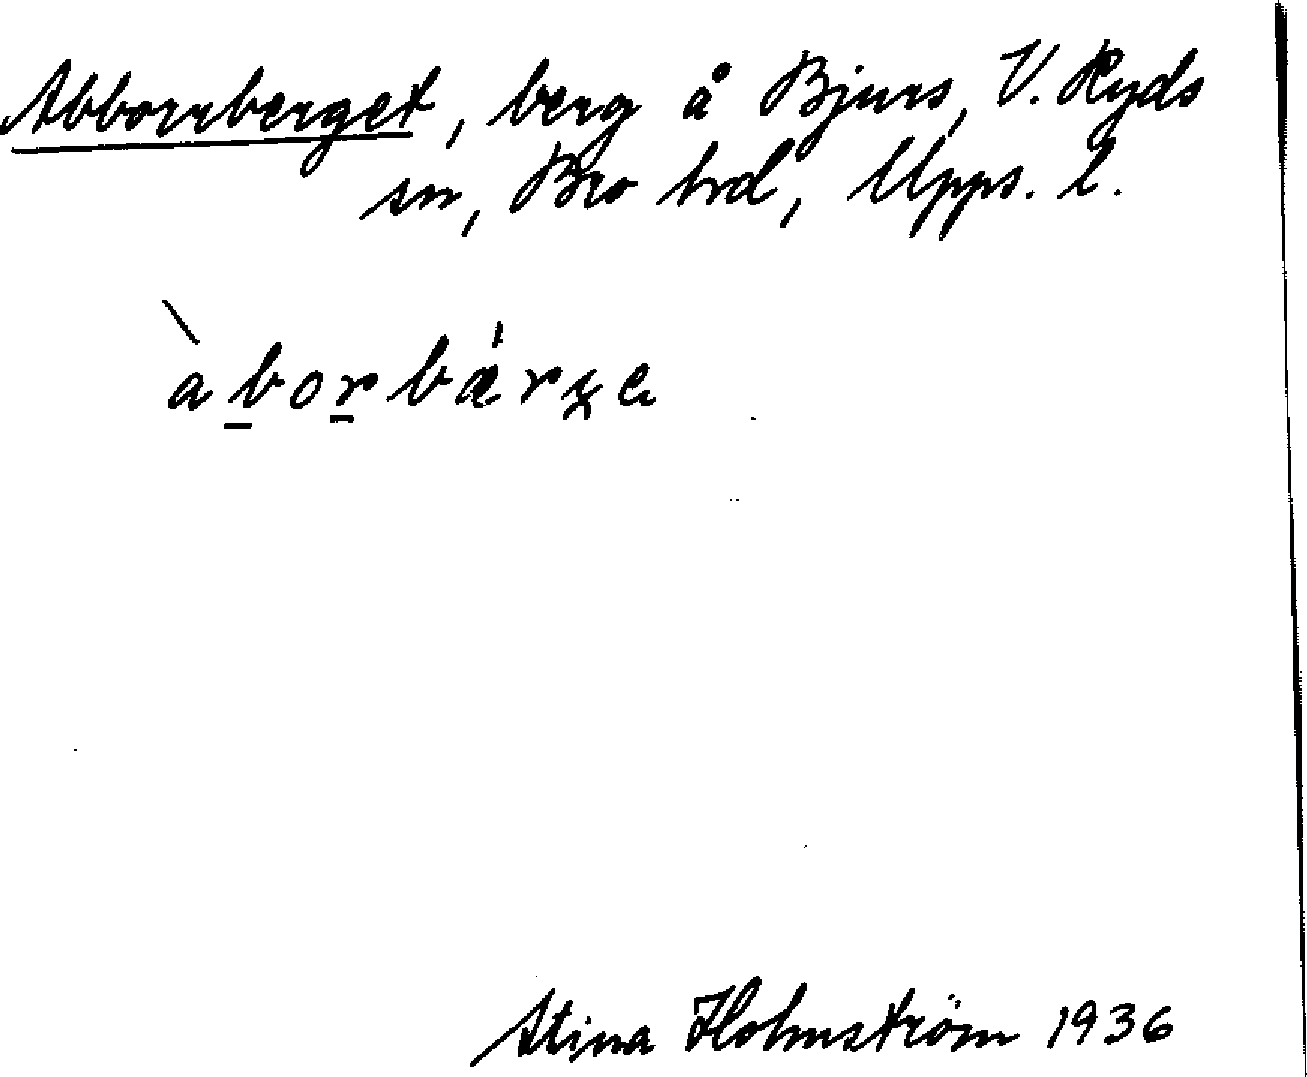 Abborrberget, berg å Bjurs, V. Ryds
sn, Bro hrd, Upps. l.
àborbǽrɣe
Stina Holmström 1936